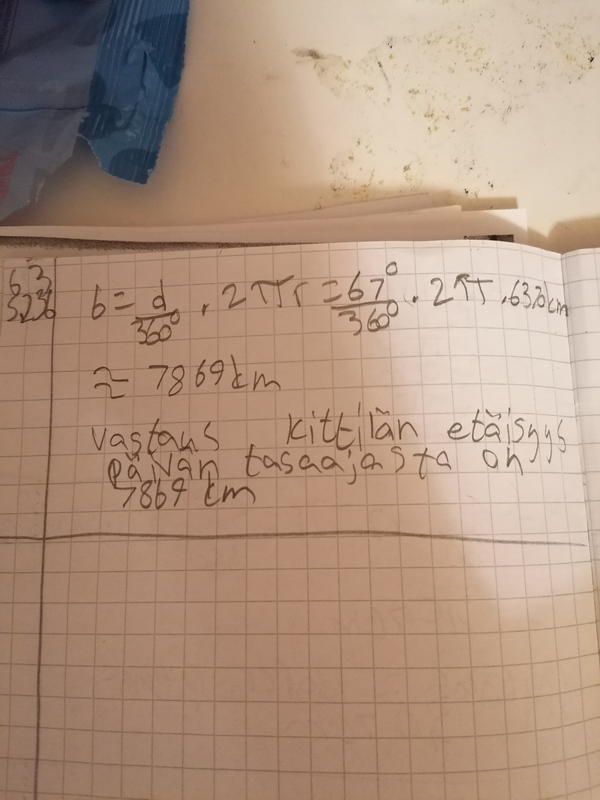 63
5236
b = d/360° · 2πr = 67°/360° · 2π · 6370km
≈ 7869km
vastaus kittilän etäisyys
päivän tasaajasta on
7869 km